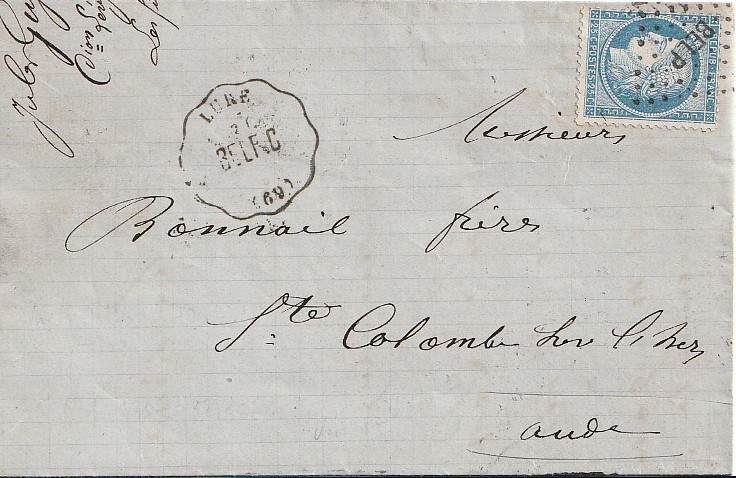 Jules
REPUB. FRANC.
25 C. POSTES 25 C.
BELP
LURE
BELF-C
(69)
Messieurs
Bonnail frères
Ste Colombe sur l'hers
aude